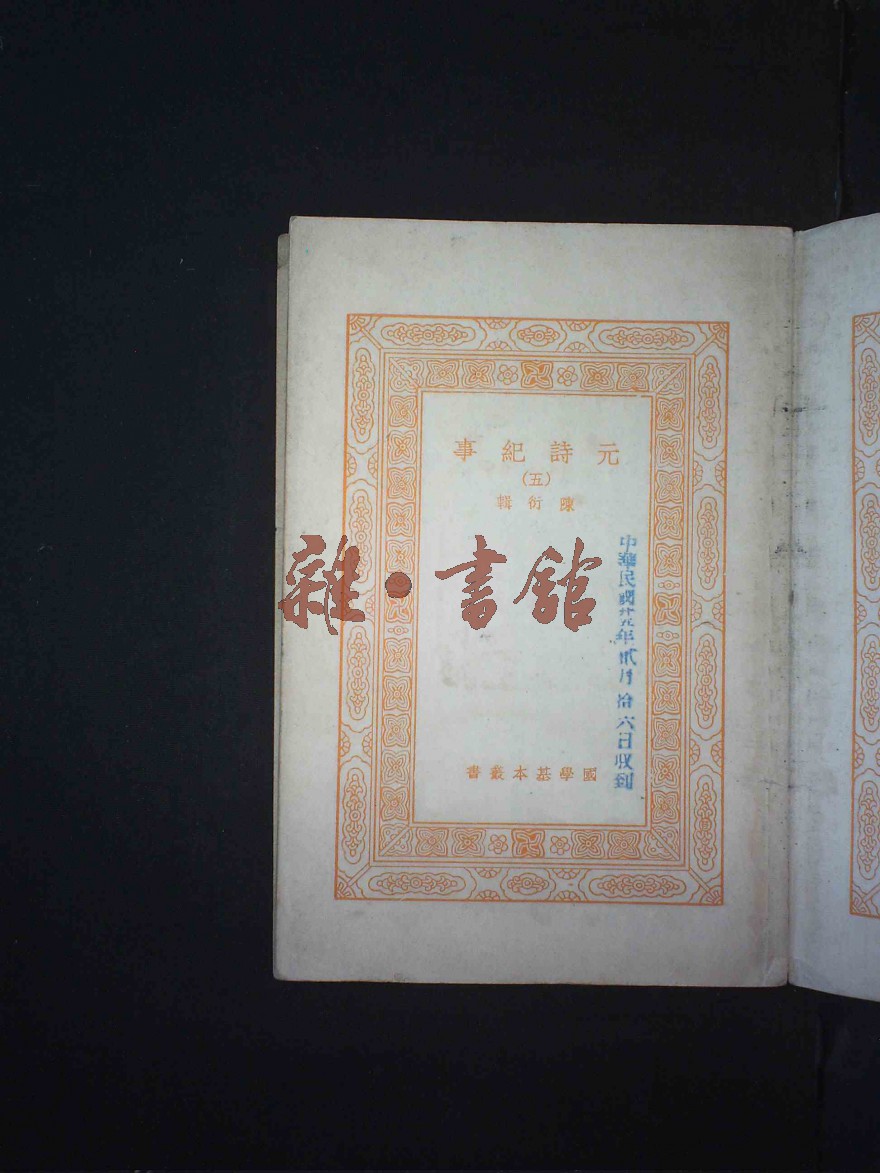 元詩紀事
(五)
陳衍輯
雜·書館
中華民國廿五年貳月拾六日收到
國學基本叢書